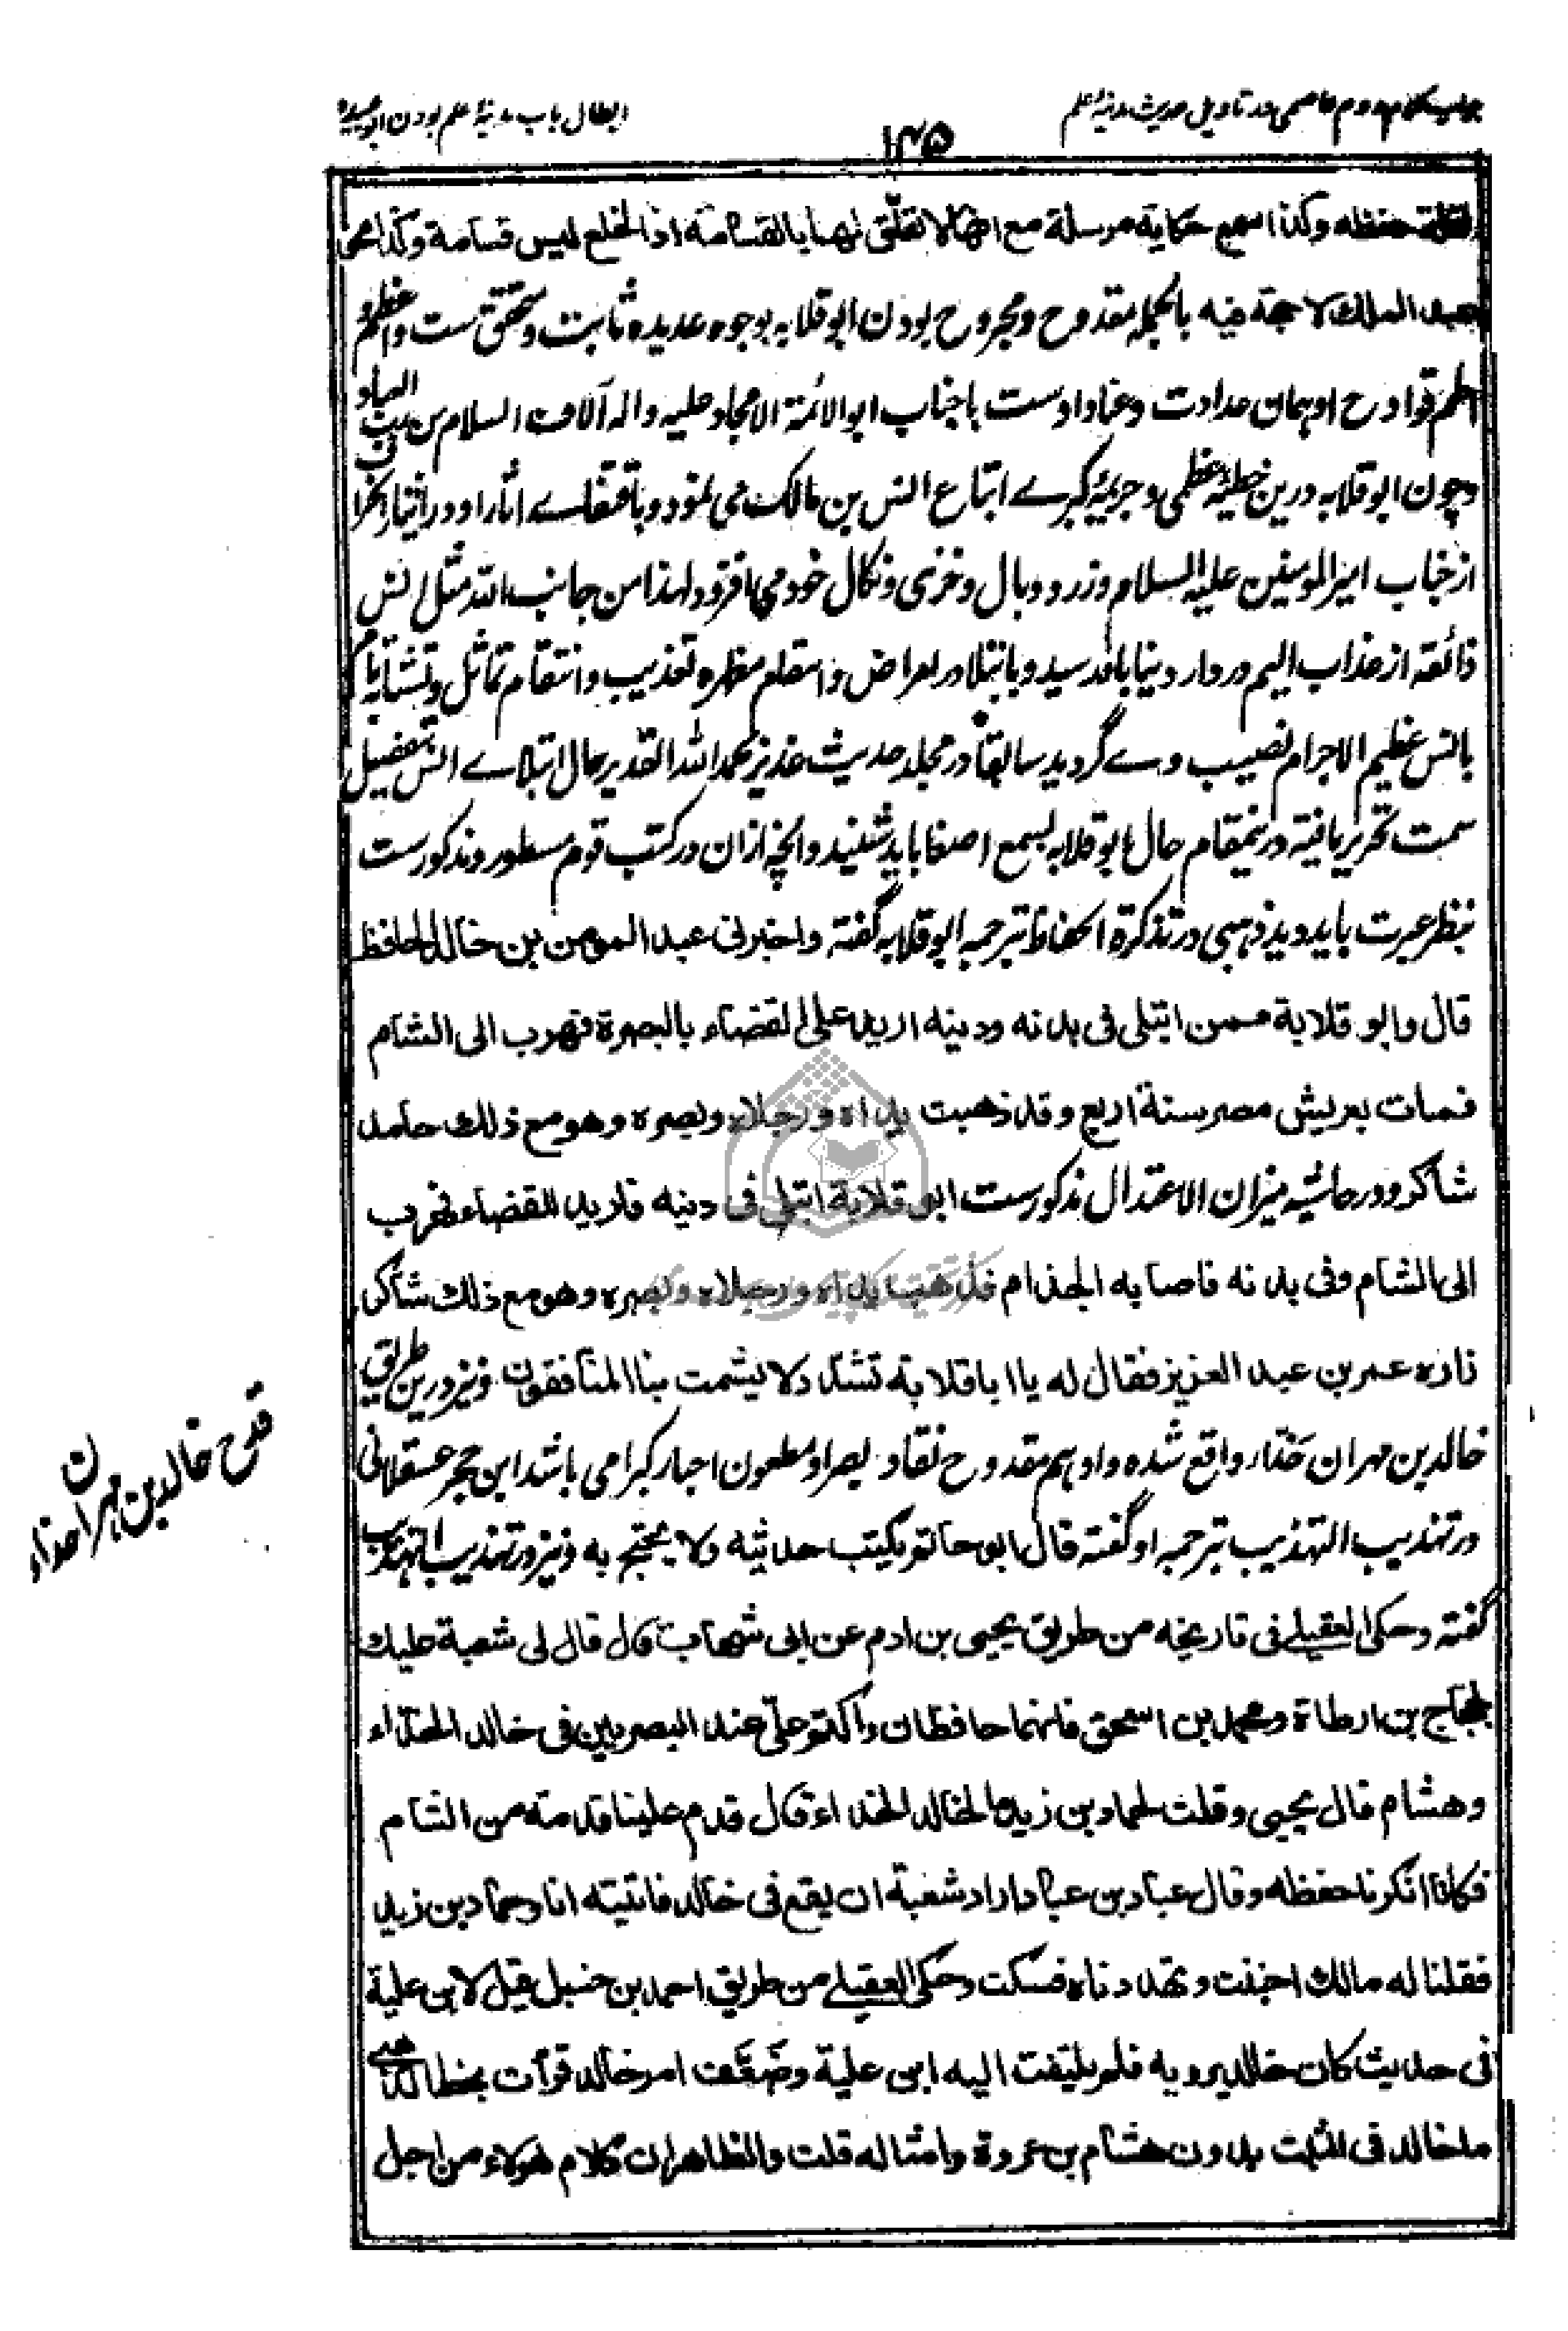 جواب کلام دوم عاصمی در تاویل حدیث مدینة علم
ابطال باب مدینۂ علم بودن ابو عبیده
۱۴۵
لقلة حفظه وکذا سمع حکایة مرسلة مع انها لا تعلّق لها بالقسامة اذ الخلع لیس قسامة وکذا محو
عبد الملك لا حجة فیه بالجمله مقدوح و مجروح بودن ابو قلابه بوجوه عدیده ثابت و متحقق ست و اعظم و
اطم قوادح او همان عداوت و عناد اوست با جناب ابو الائمة الامجاد علیه و اله آلاف السلام من رب العباد
و چون ابو قلابه درین خطیئۂ عظمی و جریمۂ کبرے اتباع انس بن مالک می نمود و باقتفاے اثار او در
از جناب امیر المومنین علیه السلام وزر و وبال و خزی و نکال خود می افزود لهذا من جانب الله مثل انس
ذائقه از عذاب الیم در دار دنیا باو رسید و بابتلا در امراض و اسقام مظهره تعذیب و انتقام تماثل و تشابه تام
بانس عظیم الاجرام نصیب وے گردید سابقا در مجلد حدیث غدیر بحمد الله القدیر حال ابتلاے انس بتفصیل
سمت تحریر یافته درینمقام حال ابو قلابه بسمع اصغا باید شنید و انچه ازان در کتب قوم مسطور و مذکور ست
بنظر عبرت باید دید ذهبی در تذکرة الحفاظ بترجمه ابو قلابه گفته واخبرنی عبد المومن بن خالد الحافظ
قال وابو قلابة ممن ابتلی فی بدنه ودینه ارید علی القضاء بالبصرة فهرب الی الشام
فمات بعریش مصر سنة اربع وقد ذهبت یداه ورجلاه وبصره وهو مع ذلك حامد
شاکر و در حاشیه میزان الاعتدال مذکور ست ابو قلابة ابتلی فی دینه فارید للقضاء فهرب
الی الشام وفی بدنه فاصابه الجذام فذهب یداه ورجلاه وبصره وهو مع ذلك شاکر
زاره عمر بن عبد العزیز فقال له یا ابا قلابة تشدد لا یشمت بنا المنافقون و نیز درین طریق
خالد بن مهران حذّاء واقع شده و او هم مقدوح نقاد بصرا و مطعون احبار کبرا می باشد ابن حجر عسقلانی
در تهذیب التهذیب بترجمه او گفته قال ابو حاتم یکتب حدیثه ولا یحتج به و نیز در تهذیب التهذیب
گفته وحکی العقیلے فی تاریخه من طریق یحیی بن ادم عن ابی شهاب قال قال لی شعبة علیك
بحجاج بن ارطاة ومحمد بن اسحق فانهما حافظان واکتم علیّ عند البصریین فی خالد الحذاء
وهشام قال یحیی وقلت لحماد بن زید ما لخالد الحذاء قال قدم علینا قدمة من الشام
فکانا انکرنا حفظه وقال عباد بن عباد اراد شعبة ان یقع فی خالد فاتیته انا وحماد بن زید
فقلنا له مالك اجننت وتهددناه فسکت وحکی العقیلے من طریق احمد بن حنبل قیل لابن علیة
فی حدیث کان خالد یرویه فلم یلتفت الیه ابن علیة وضعّف امر خالد قرأت بخط الذهبی
ما خالد فی الثبت بدون هشام بن عروة وامثاله قلت والظاهر ان کلام هولاء من اجل
قدح خالد بن مهران حذاء